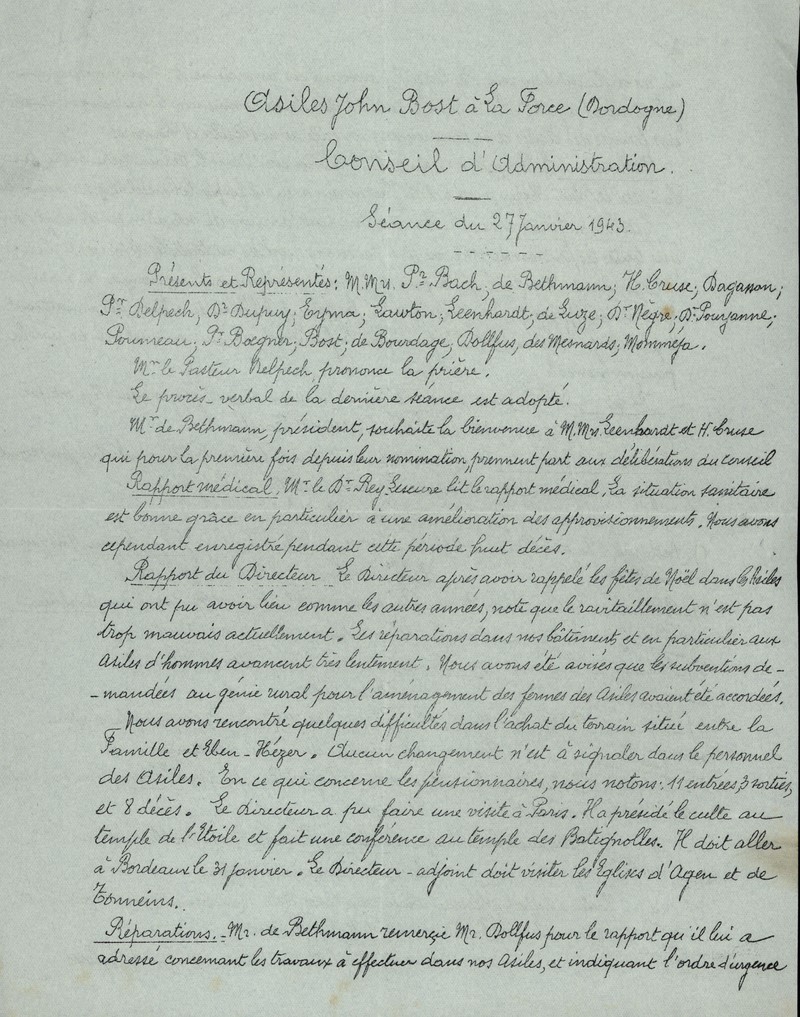 Asiles John Bost à La Force (Dordogne)
Conseil d'Administration.
Séance du 27 Janvier 1943.
Présents et Représentés: M.Mrs. Pr Bach; de Bethmann; H. Cruse; Dagassan;
Pr Delpech, Dr Dupuy; Eyma; Lawton; Leenhardt; de Luze; Dr Nègre, Dr Pouyanne;
Poumeau; Pr Boegner; Bost; de Bourdage, Dollfus, des Mesnards; Momméja.
Mr le Pasteur Delpech, prononce la prière.
Le procès-verbal de la dernière séance est adopté.
Mr de Bethmann, président, souhaite la bienvenue à M.Mrs. Leenhardt et H. Cruse
qui pour la première fois depuis leur nomination, prennent part aux délibérations du conseil
Rapport médical, Mr le Dr Rey Lescure lit le rapport médical, La situation sanitaire
est bonne grâce en particulier à une amélioration des approvisionnements. Nous avons
cependant enregistré pendant cette période huit décès.
Rapport du Directeur Le Directeur après avoir rappelé les fêtes de Noël dans les Asiles
qui ont pu avoir lieu comme les autres années, note que le ravitaillement n'est pas
trop mauvais actuellement. Les réparations dans nos bâtiments et en particulier aux
Asiles d'hommes avancent très lentement. Nous avons été avisés que les subventions de-
-mandées au génie rural pour l'aménagement des fermes des Asiles avaient été accordées.
Nous avons rencontré quelques difficultés dans l'achat du terrain situé entre la
Famille et Eben-Hézer. Aucun changement n'est à signaler dans le personnel
des Asiles. En ce qui concerne les pensionnaires, nous notons: 11 entrées, 3 sorties,
et 8 décès. Le Directeur a pu faire une visite à Paris. Il a présidé le culte au
temple de l'Etoile et fait une conférence au temple des Batignolles. Il doit aller
à Bordeaux le 31 Janvier. Le Directeur-adjoint doit visiter les Eglises d'Agen et de
Tonneins.
Réparations. Mr. de Bethmann remercie Mr. Dollfus pour le rapport qu'il lui a
adressé concernant les travaux à effectuer dans nos Asiles, et indiquant l'ordre d'urgence